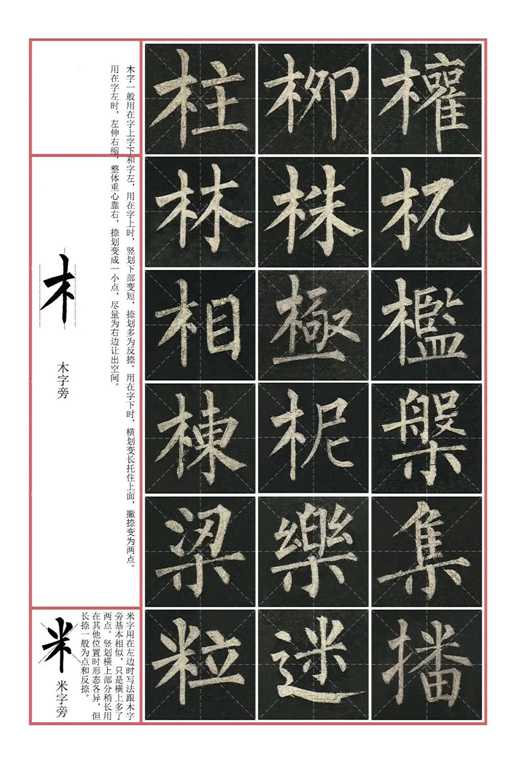 柱 柳 權
林 株 杌
相 極 檻
棟 柅 槃
梁 樂 集
粒 迷 播
木字一般用在字上字下和字左,用在字上时,竖划下部变短,捺划多为反捺,用在字下时,横划变长托住上面,撇捺变为两点。
用在字左时,左伸右缩,整体重心靠右,捺划变成一小点,尽量为右边让出空间。
木
木字旁
米字用在左边时写法跟木字
旁基本相似,只是横上多了
两点,竖划横上部分稍长用
在其他位置时形态各异,但
长捺一般为点和反捺。
米
米字旁